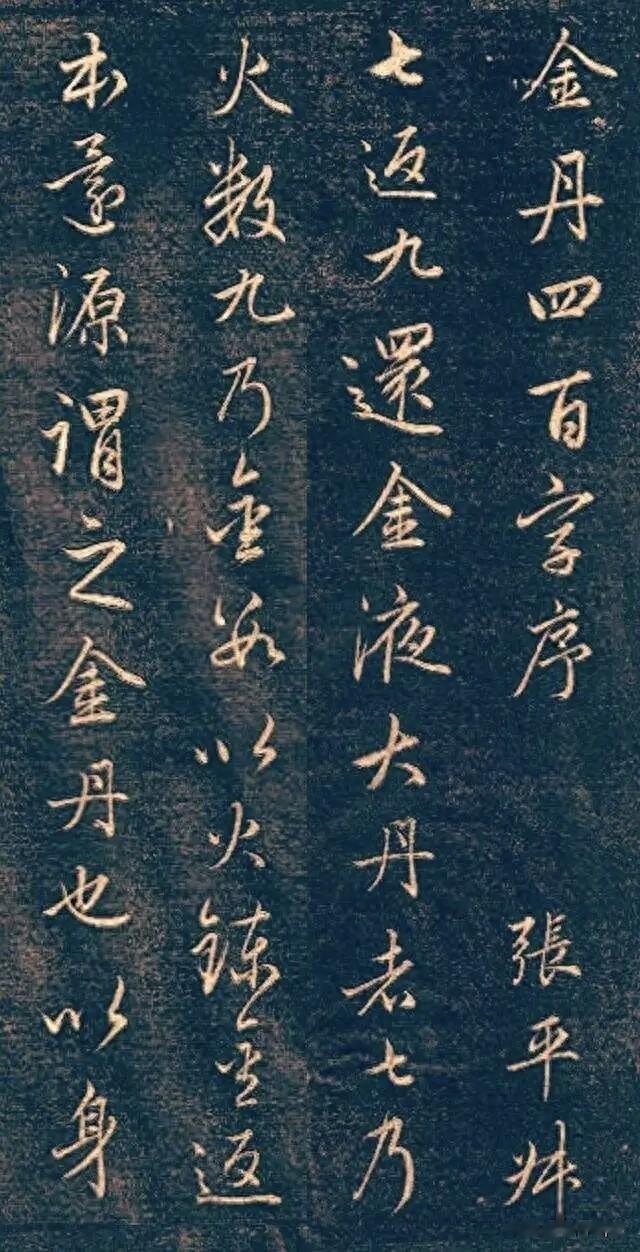 金丹四百字序 張平叔
七返九還金液大丹者七乃
火数九乃金数以火鍊金返
本還源謂之金丹也以身